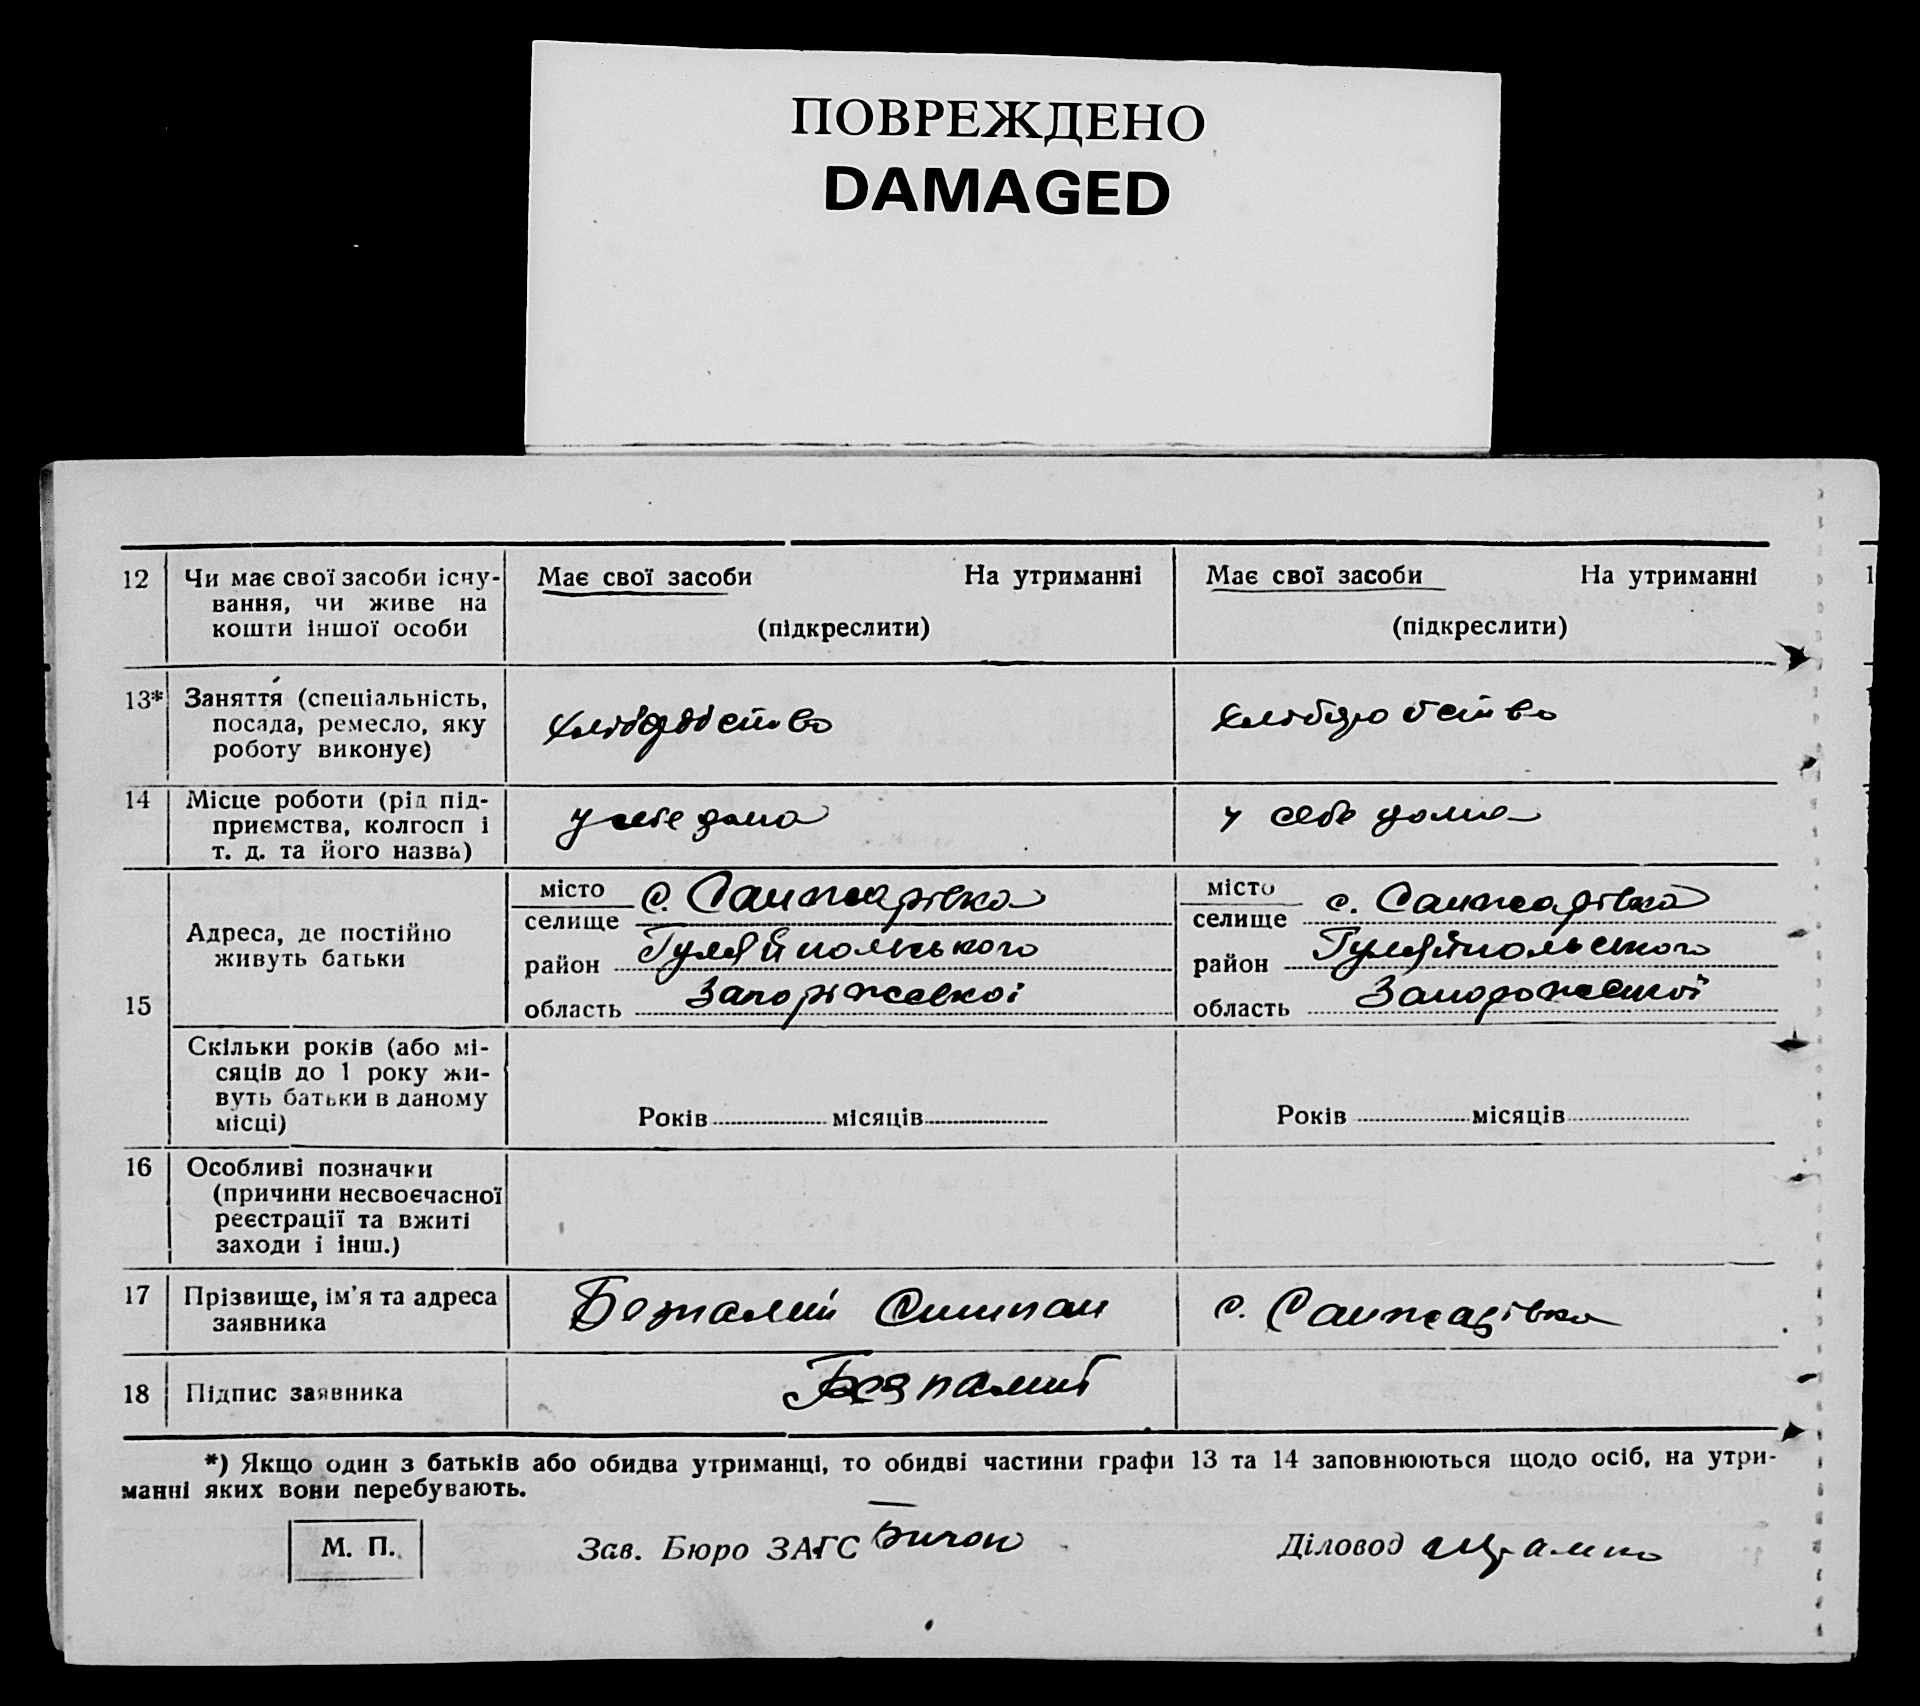 ПОВРЕЖДЕНО
DAMAGED
12 Чи має свої засоби існу-
вання, чи живе на
кошти іншої особи
Має свої засоби На утриманні
(підкреслити)
Має свої засоби На утриманні
(підкреслити)
13* Заняття (спеціальність,
посада, ремесло, яку
роботу виконує)
14 Місце роботи (рід під-
приємства, колгосп і
т. д. та його назва)
у себе дома
у себе дома
15
Адреса, де постійно
живуть батьки
місто
селище с. Санжарівка
район Гуляйпольського
область Запоріжської
місто
селище с. Санжарівка
район Гуляйпольського
область Запорожської
Скільки років (або мі-
сяців до 1 року жи-
вуть батьки в даному
місці)
Років місяців
Років місяців
16 Особливі позначки
(причини несвоєчасної
реєстрації та вжиті
заходи і інш.)
17 Прізвище, ім'я та адреса
заявника
с. Санжарівка
18 Підпис заявника
*) Якщо один з батьків або обидва утриманці, то обидві частини графи 13 та 14 заповнюються щодо осіб, на утри-
манні яких вони перебувають.
М. П. Зав. Бюро ЗАГС Діловод